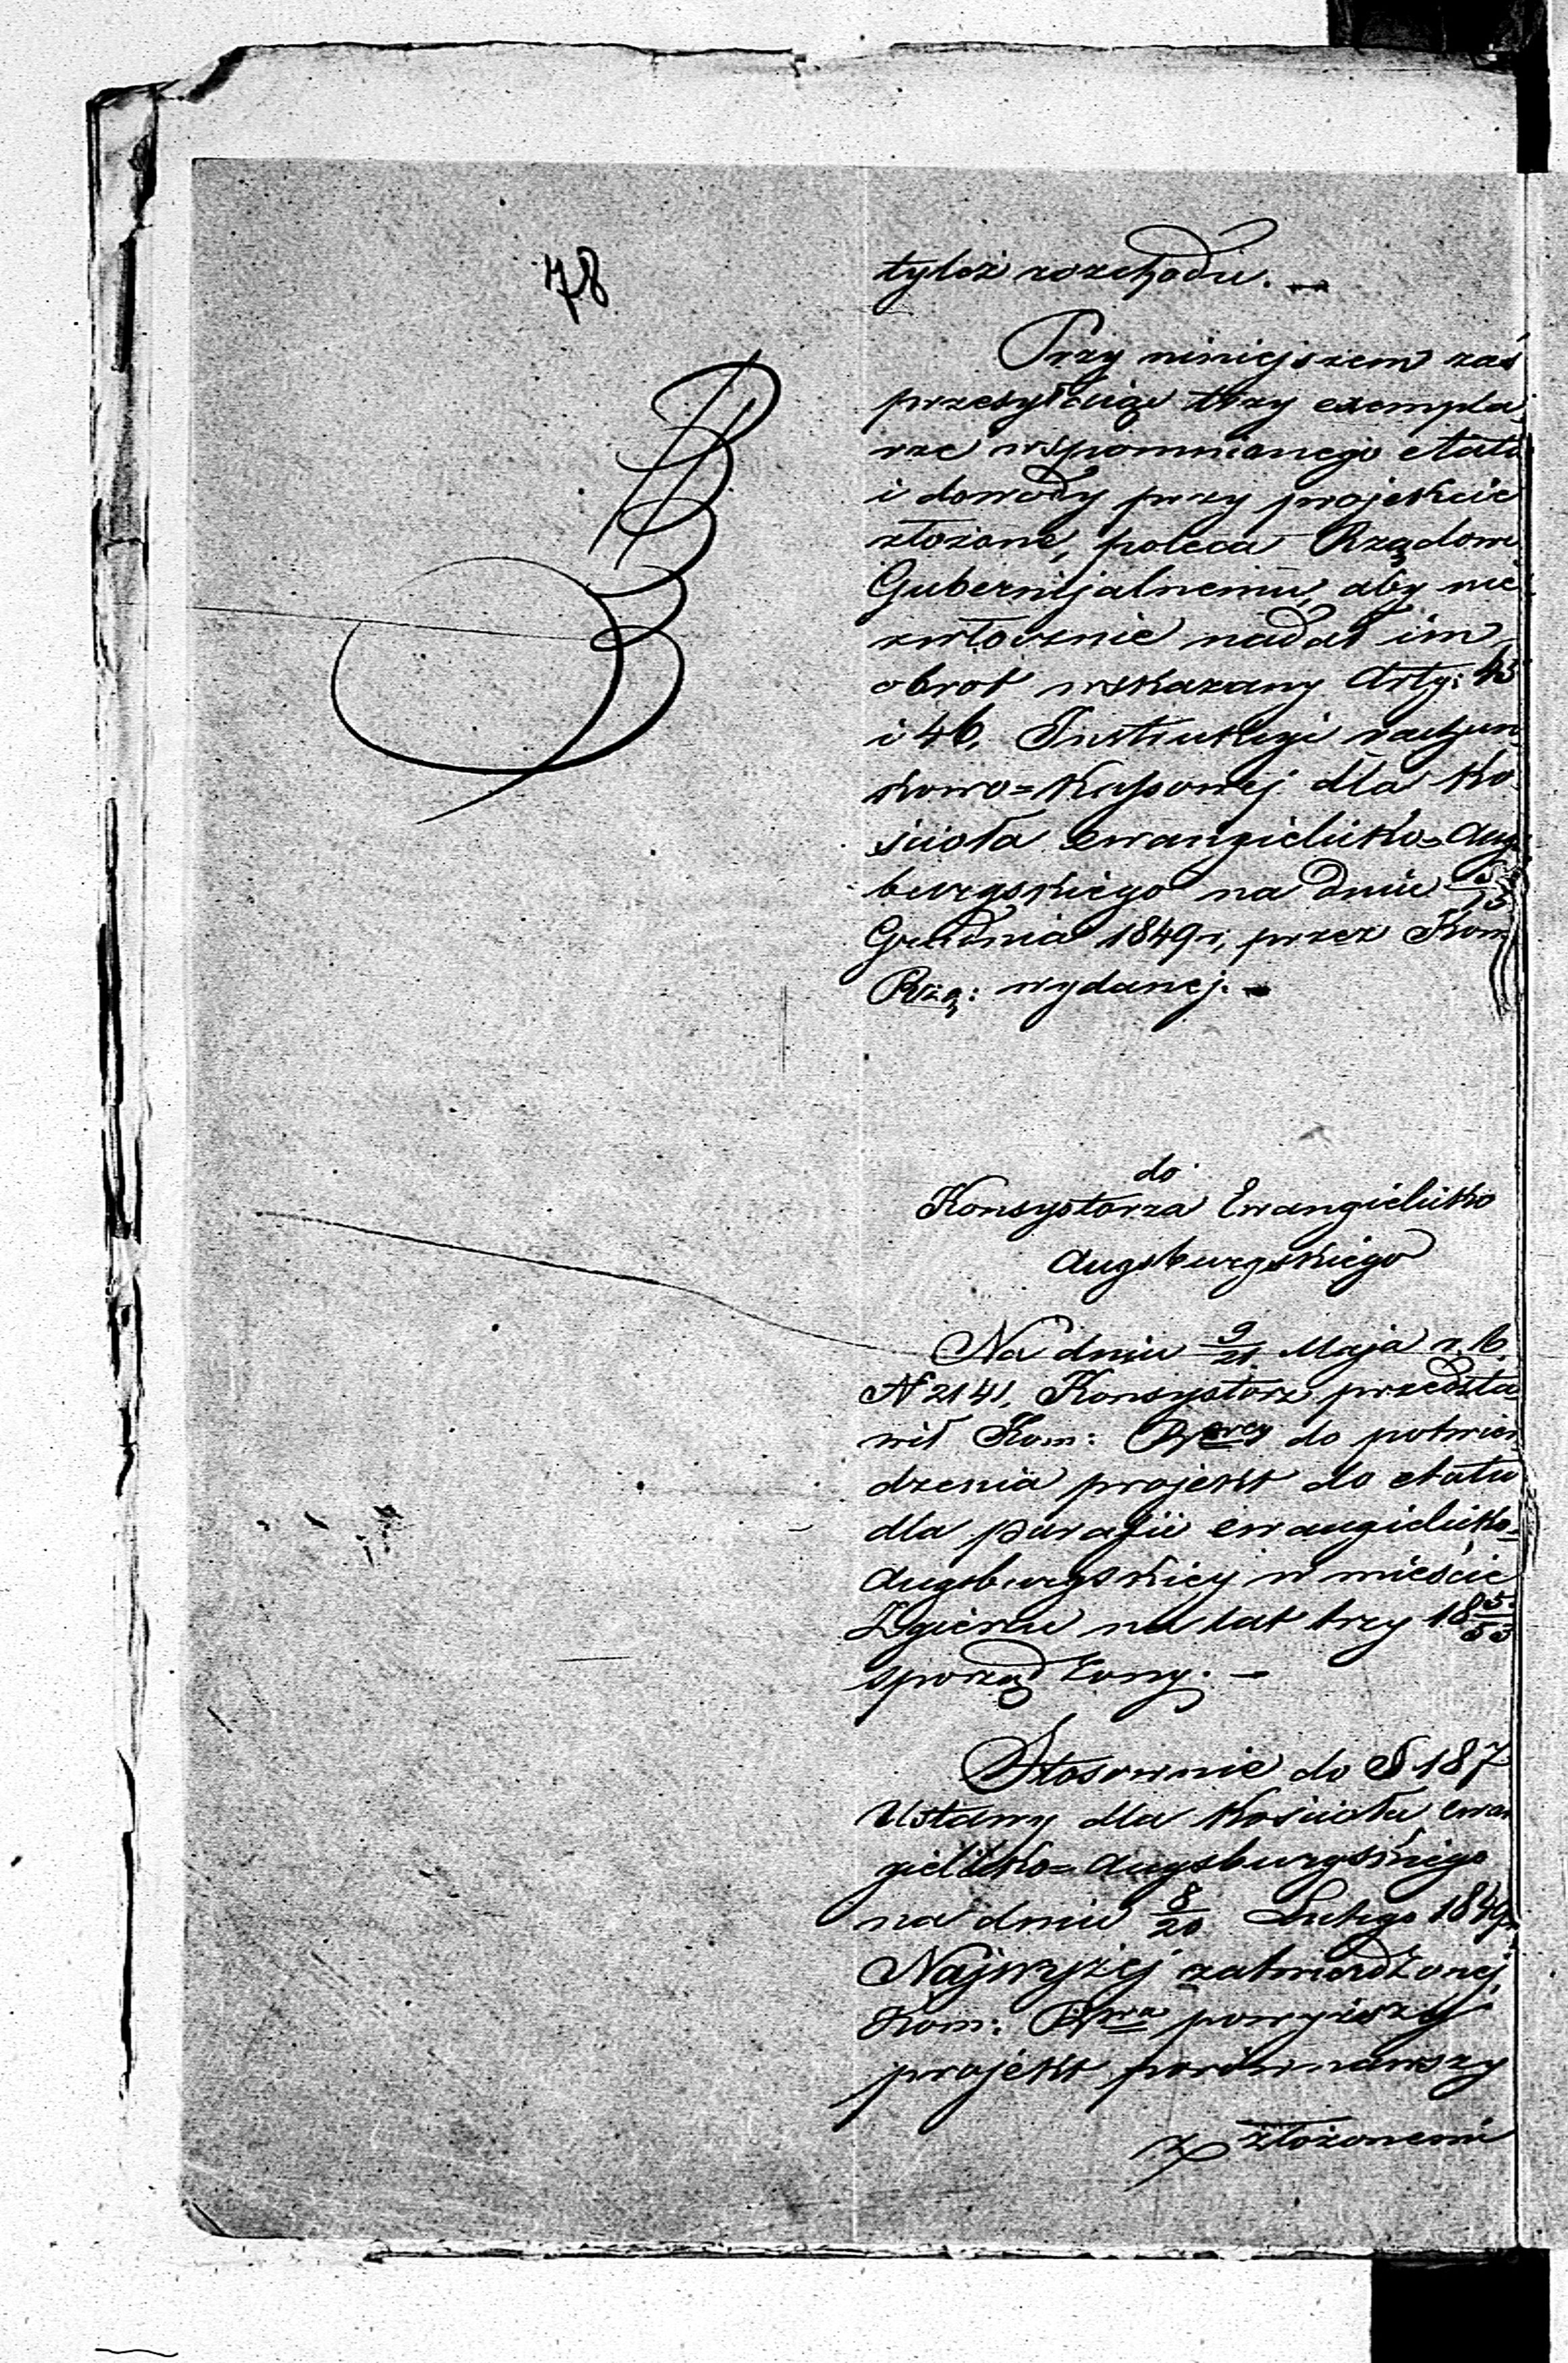 78
tyleż rozchodu. —
Przy niniejszem zaś
przesyłając trzy exempla
rze wspomnionego etatu
i dowody przy projekcie
złożone, poleca Rządowi
Gubernijalnemu, aby nie
zwłocznie nadał im
obrot wskazany Arty: 45
i 46, Instrukcyi rachun
kowo=Kassowej dla Ko
ścioła Ewangielicko=Aug
burgskiego na dniu
Grudnia 1849 r, przez Kom
Rzą: wydanej. —
do
Konsystorza Ewangielicko
Augsburgskiego
Na dniu 9/21 Maja r. b.
N 2141, Konsystorz przedsta
wił Kom: do potwier
dzenia projekt do etatu
dla parafii ewangielicko=
Augsburgskiej w mieście
Zgierzu na lat trzy 18
sporządzony. —
Stosownie do § 187
Ustawy dla Kościoła Ewan
gielicko=Augsburgskiego
na dniu 8/20 Lutego 1849 r
Najwyżej zatwierdzonej,
Kom: powyższy
projekt porównawszy
z złożonemi